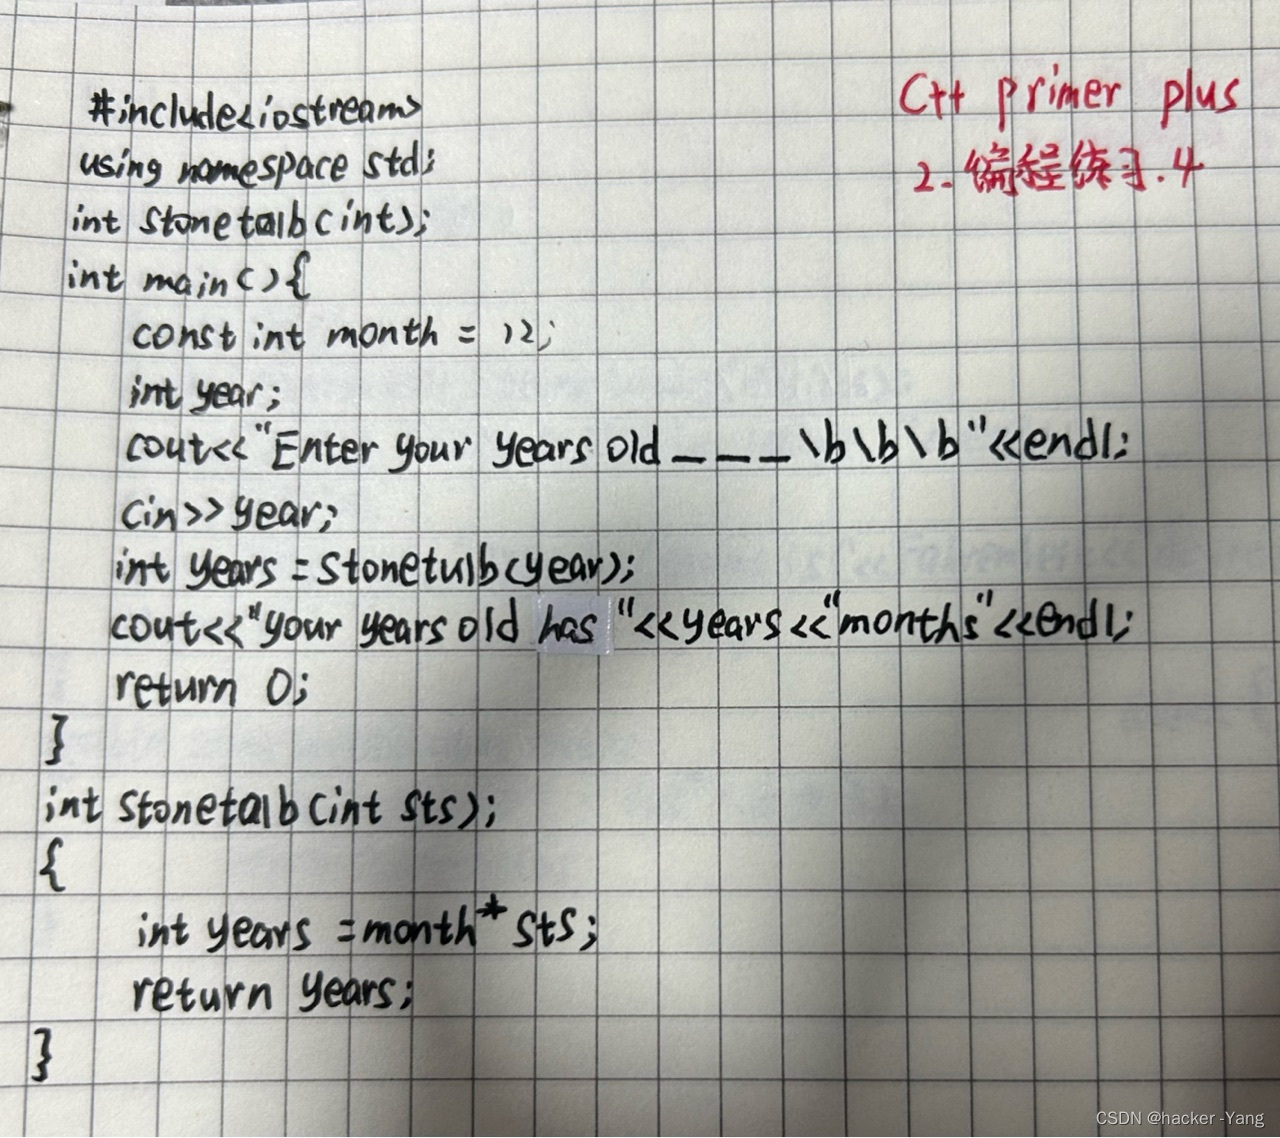 C++ primer plus
2.编程练习.4
#include<iostream>
using namespace std;
int stonetalb(int);
int main(){
const int month = 12;
int year;
cout<<"Enter your years old _ _ _ \b\b\b"<<endl;
cin>>year;
int years =stonetulb(year);
cout<<"your years old has "<<years<<"months"<<endl;
return 0;
}
int stonetalb(int sts);
{
int years =month* sts;
return years;
}
CSDN @hacker -Yang